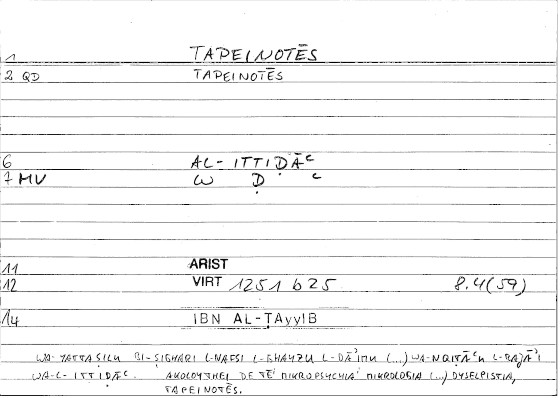 1 TAPEINOTĒS
2 QD TAPEINOTĒS
6 AL-ITTIḌĀᶜ
7 MV W Ḍ ᶜ
11 ARIST
12 VIRT 1251 b 25 8.4(59)
14 IBN AL-ṬAyyIB
WA-YATTAṢILU BI-ṢIGHARI L-NAFSI L-GHAYẒU L-DĀʾIMU (...) WA-NQIṬĀᶜU L-RAJĀʾI
WA-L-ITTIḌĀᶜ. AKOLOYTHEI DE TĒ͂ MIKROPSYCHIA͂ MIKROLOGIA (...) DYSELPISTIA,
TAPEINOTĒS.